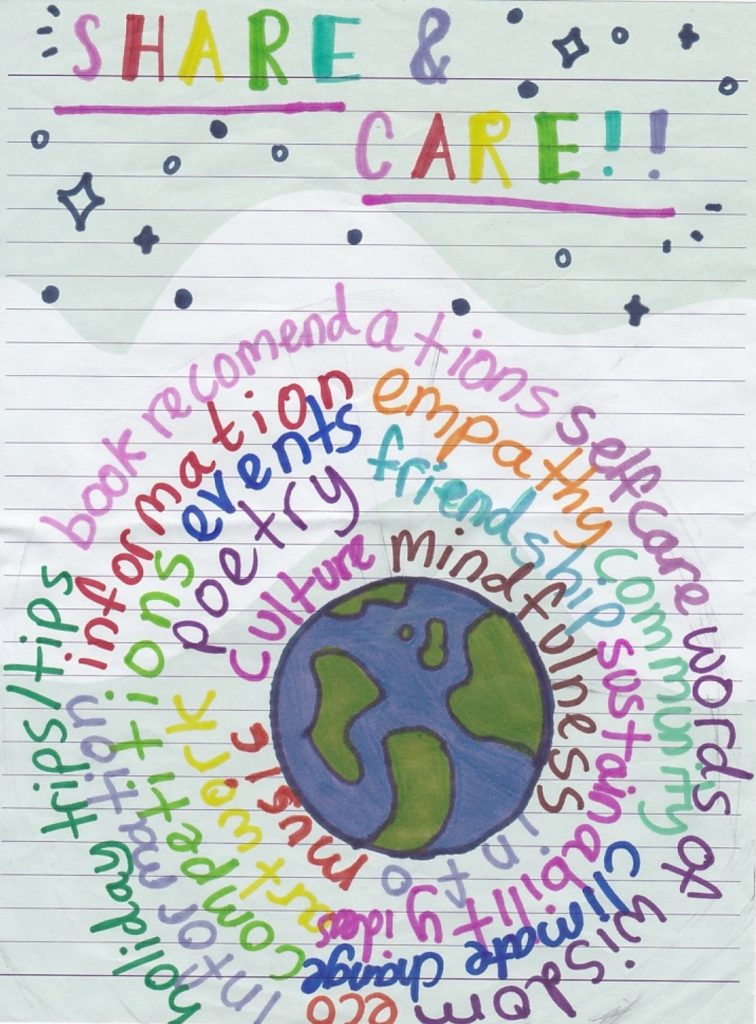 SHARE &
CARE!!
book recomendations
selfcare
words of wisdom
information
empathy
community
events
friendship
poetry
culture
mindfulness
sustainability ideas
climate change
eco
info
music
artwork
competitions
information
holiday trips/tips